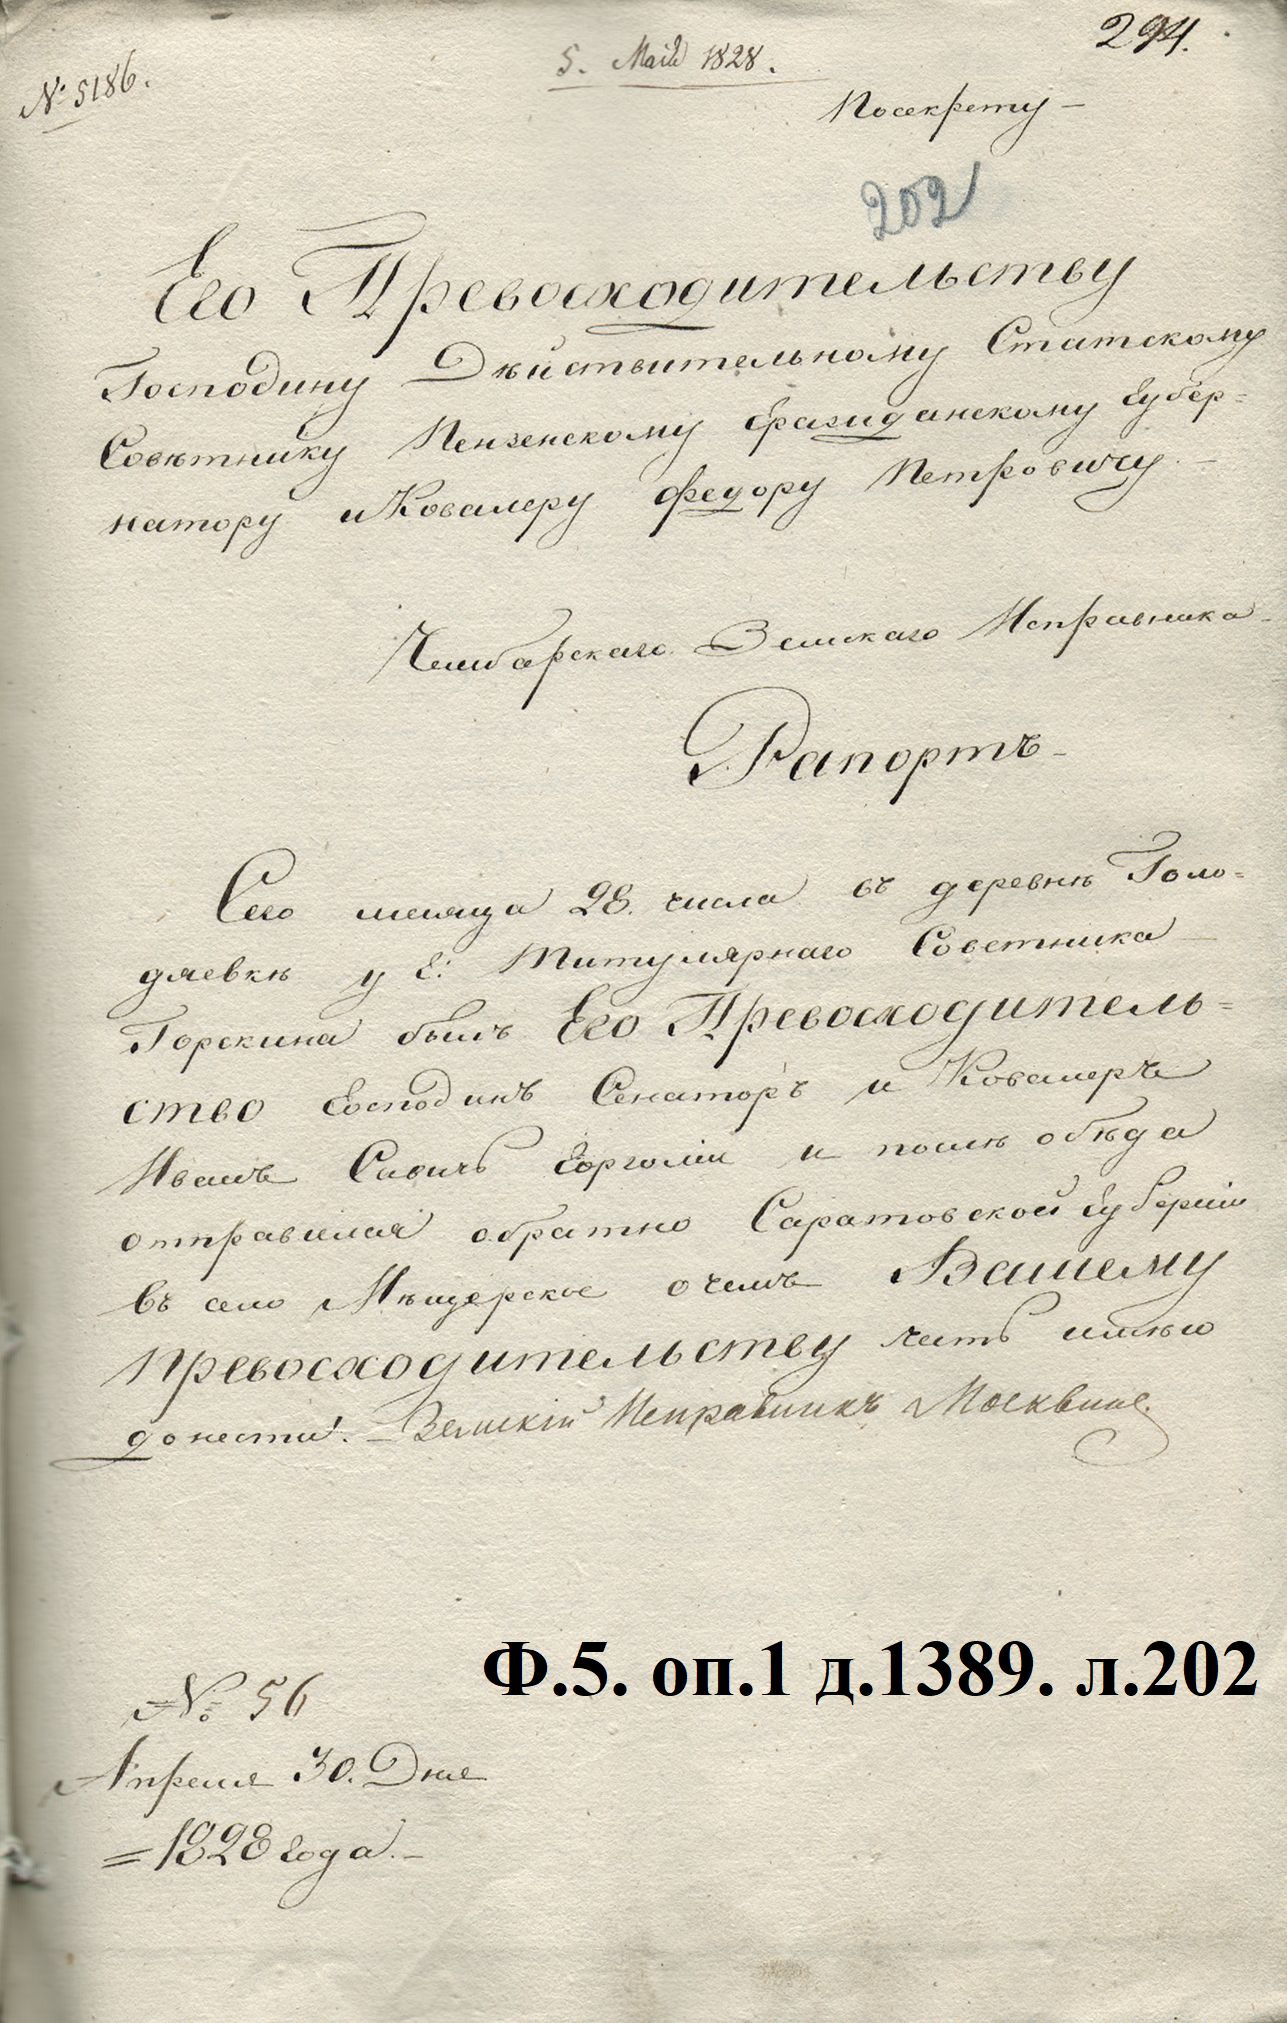 294.
5. Маія 1828.
№ 5186.
Посекрету
202
Его Превосходительству
Господину Дѣйствительному Статскому
Совѣтнику Пензенскому Гражданскому Губер=
натору и Кавалеру Федору Петровичу
Чембарскаго Земскаго Исправника
Рапортъ
Сего месяца 28. числа въ деревнѣ Голо=
дяевкѣ у Г: Титулярнаго Советника
Горскина былъ Его Превосходитель=
ство Господинъ Сенаторъ и Кавалеръ
Иванъ Савичь Горголии и послѣ обѣда
отправился обратно Саратовской Губерніи
въ село Мѣщерское о чемъ Вашему
Превосходительству честь имѣю
донести. Земскій Исправникъ Москвинъ.
№ 56
Апреля 30. Дня
=1828 года.
Ф.5. оп.1 д.1389. л.202